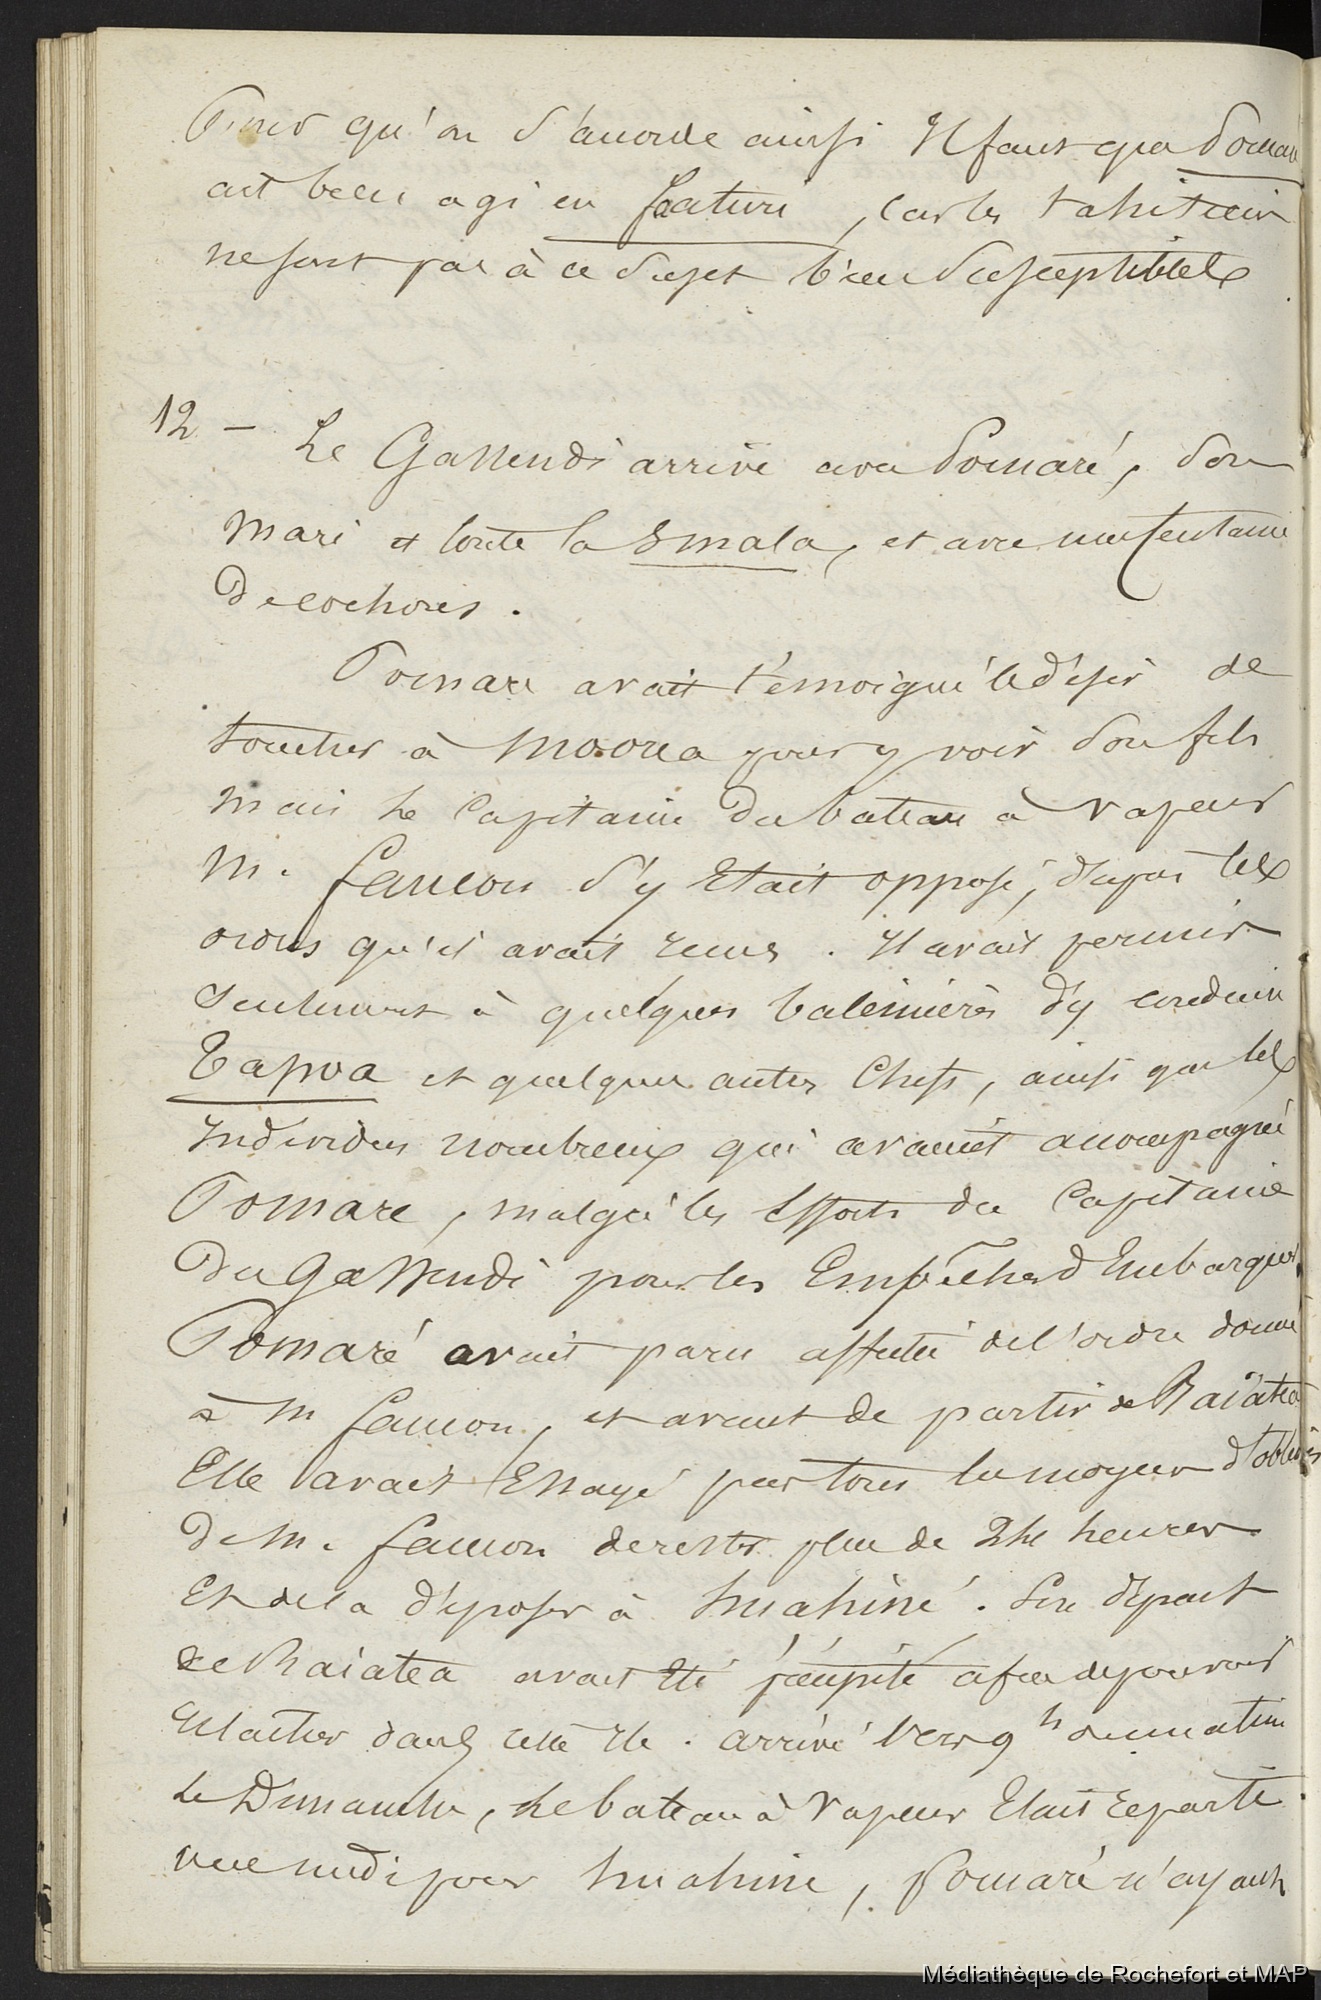 Pour qu'on s'accorde ainsi Il faut que Pomare
ait bien agi en , car les tahitiens
ne sont pas à ce sujet bien susceptibles
12 — Le Gassendi arrive avec Pomaré, son
mari et toute la Smala, et avec une centaine
de cochons.
Pomare avait témoigné le désir de
toucher à Moorea pour y voir son fils
mais le Capitaine du bateau à vapeur
M. Faucon s'y etait opposé, d'après les
ordres qu'il avait reçus. Il avait permis
seulement à quelques baleinières d'y conduire
Tapoa et quelques autres Chefs, ainsi que les
individus nombreux qui avaient accompagné
Pomare, malgré les Efforts du Capitaine
du Gassendi pour les Empêcher d'Embarquer
Pomaré avait paru affectée de l'ordre donné
à M Faucon, et avant de partir de Raiatea
Elle avait Essayé par tous les moyens d'obtenir
de M. Faucon de rester plus de 24 heures
Et de la déposer à Huahiné. Son départ
de Raiatea avait été précipité afin de pouvoir
relacher dans cette Ile. arrivé vers 9 h du matin
le Dimanche, le bateau à vapeur Etait reparti
vers midi pour Huahine, Pomaré n'ayant
Médiathèque de Rochefort et MAP